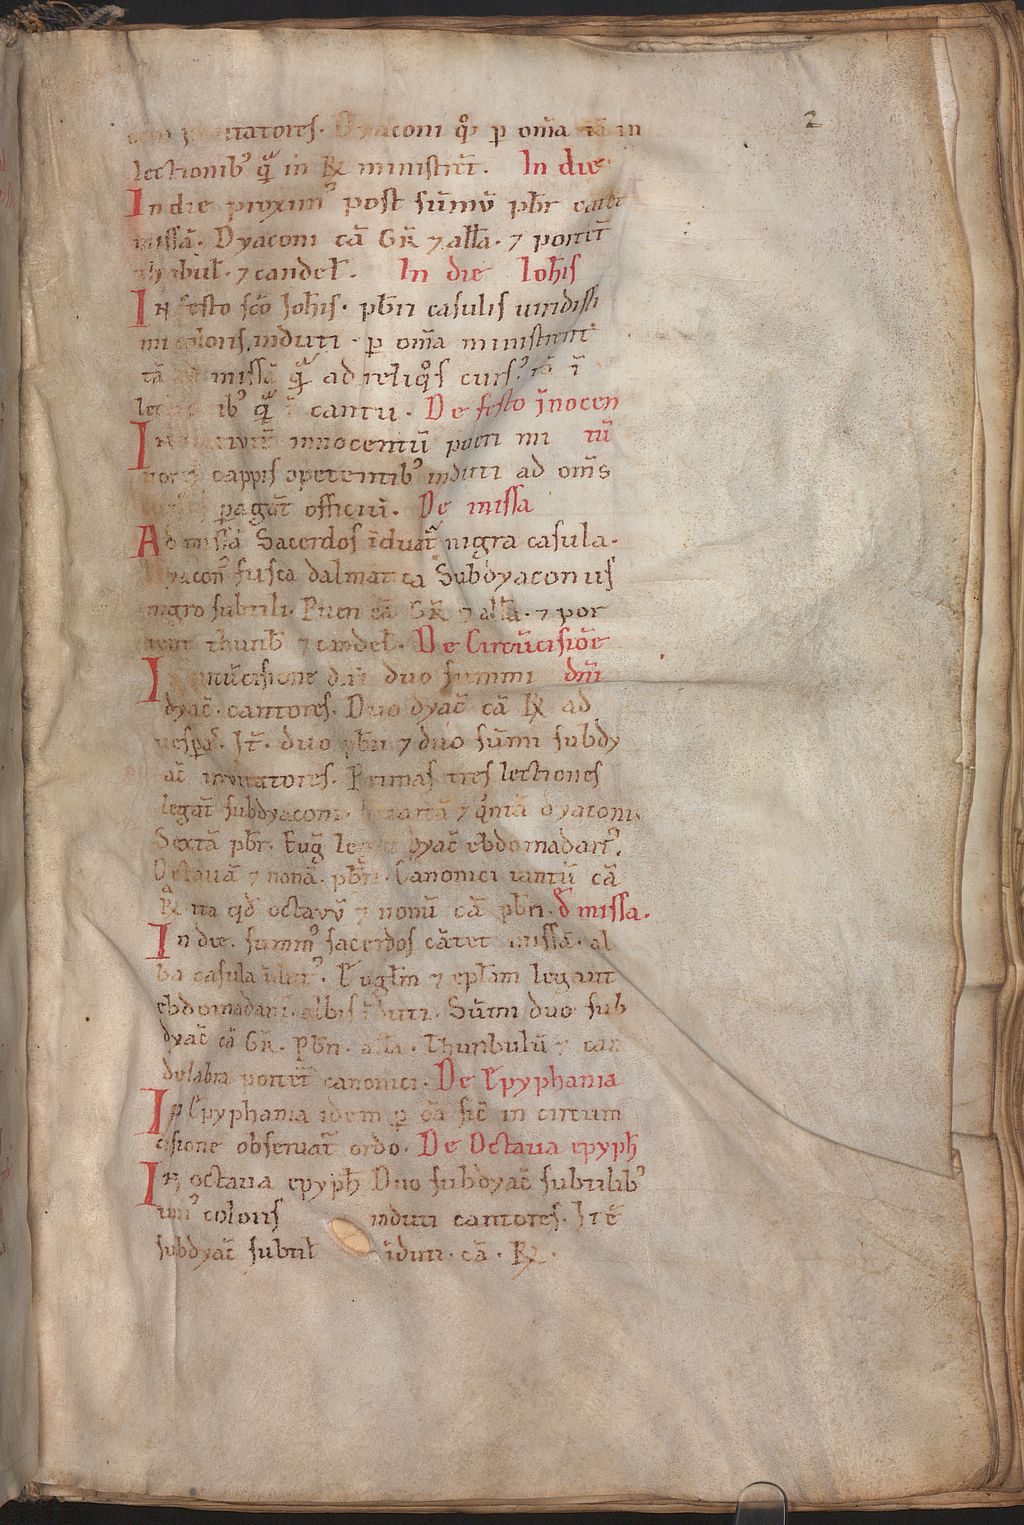 2
tatores. Dyaconi q̊ꝫ ꝑ om̄a tā in
lectionibꝰ q̄ꝫ in ℟ ministrēt. In die
In die proximꝰ post sūmū pb̄r cātet
missā. Dyaconi cā GR̄ ⁊ all̄a. ⁊ portēt
thribul̄. ⁊ candel̄. In die Ioh̄is
In festo sc̄o Ioh̄is. pb̄ri casulis uiridissi
mi coloris induti. ꝑ om̄a ministrent
tā missā q̄ꝫ ad reliq̊s cursꝰ tā ī
ibꝰ q̄ꝫ ī cantu. De festo īnocen
In innocentū pueri mi tū
nores cappis cōpetentibꝰ induti ad om̄s
ꝑagāt officiū. De missa
Ad missā Sacerdos īduat̄ nigra casula.
Dyacon̄ fusca dalmatica Subdyaconus
nigro subtili. Pueri cā GR̄ ⁊ all̄a. ⁊ por
tent thurib̄ ⁊ candel̄. De Circūcisiōe
In circūcisione dn̄i duo summi dn̄i
dyac̄. cantores. Duo dyac̄ cā ℟ ad
uesꝑas. It̄. duo pb̄ri ⁊ duo sūmi subdy
ac̄ inuitatores. Primas tres lectiones
legāt subdyaconi. quartā ⁊ q̊intā dyaconi.
Sextā pb̄r. Euḡ dyac̄ ebdomadariꝰ.
Octauā ⁊ nonā. pb̄ri. Canonici tantū cā
℟ ita qd̄ octauū ⁊ nonū cā pb̄ri. d̄ missa.
In die. summꝰ sacerdos cātet missā. al
ba casula īdutꝰ. Eūgl̄m ⁊ epl̄am legant
ebdomadarii. albis īduti. Sūmi duo sub
dyac̄ cā GR̄. pb̄ri. all̄a. Thuribulū ⁊ can
delabra portēt canonici. De Epyphania
In Epyphania idem ꝑ oīa sic̄ in circum
cisione obseruat̄ ordo. De Octaua epyph̄
In octaua epyph̄ Duo subdyac̄ subtilibꝰ
uniꝰ coloris induti cantores. Itē
subdyac̄ subtil̄ īduti. cā. ℟.